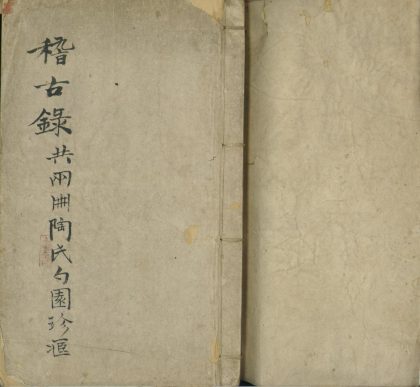 稽古錄共兩冊陶氏勻園珍滙